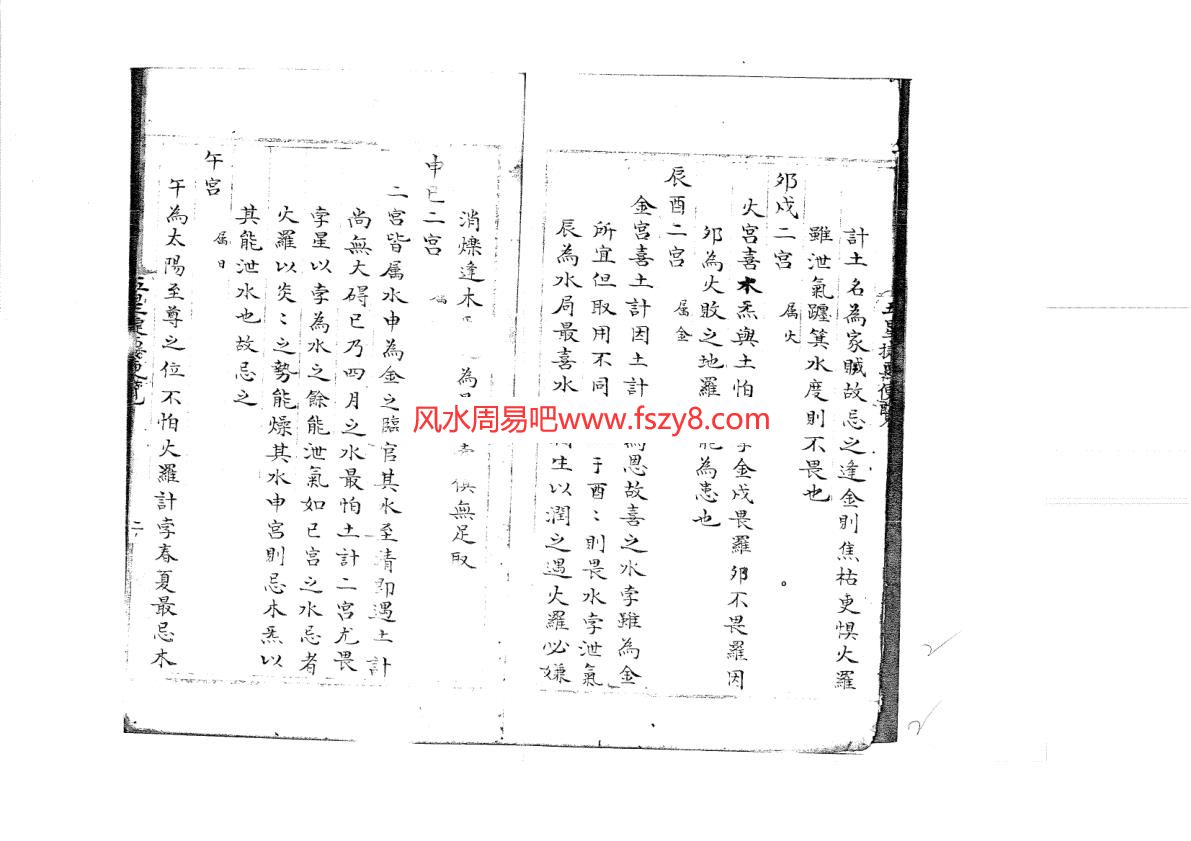 計土名為家賊故忌之逢金則焦枯更惧火羅
雖泄氣躔箕水度則不畏也
夘戌二宮 属火
火宮喜木炁與土怕 孛金戌畏羅夘不畏羅因
夘為火敗之地羅 能為患也
辰酉二宮 属金
金宮喜土計因土計 為恩故喜之水孛雖為金
所宜但取用不同 于酉〻則畏水孛泄氣
辰為水局最喜水 生以潤之遇火羅必嫌
消爍逢木 為 俱無足取
申巳二宮
二宮皆属水申為金之臨官其水至清即遇土計
尚無大碍巳乃四月之水最怕土計二宮尤畏
孛星以孛為水之餘能泄氣如巳宮之水忌者
火羅以炎〻之勢能燥其水申宮則忌木炁以
其能泄水也故忌之
午宮 属日
午為太陽至尊之位不怕火羅計孛春夏最忌木
二
风水周易吧www.fszy8.com